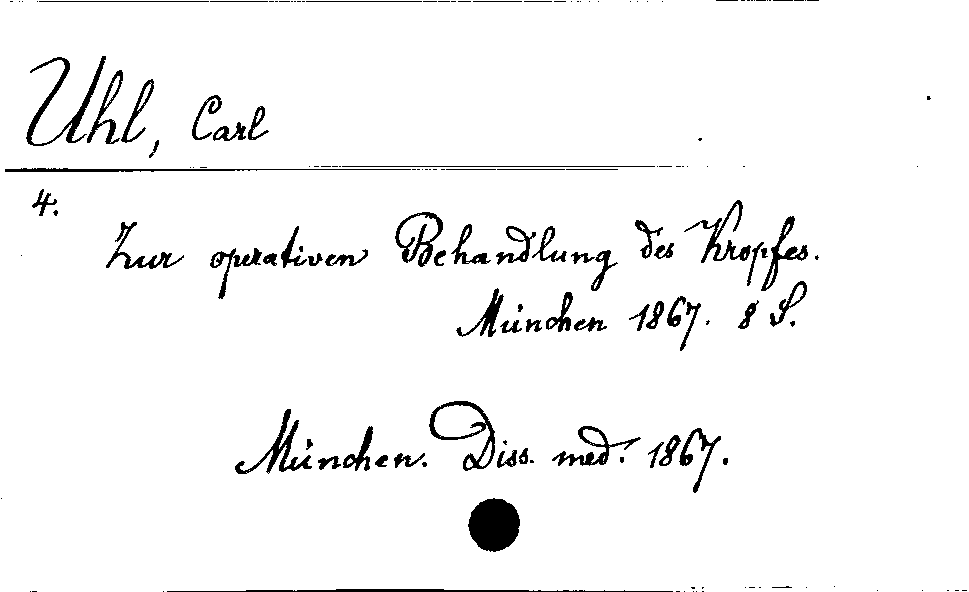 Uhl, Carl
4.
Zur operativen Behandlung des Kropfes.
München 1867. 8 S.
München. Diss. med. 1867.